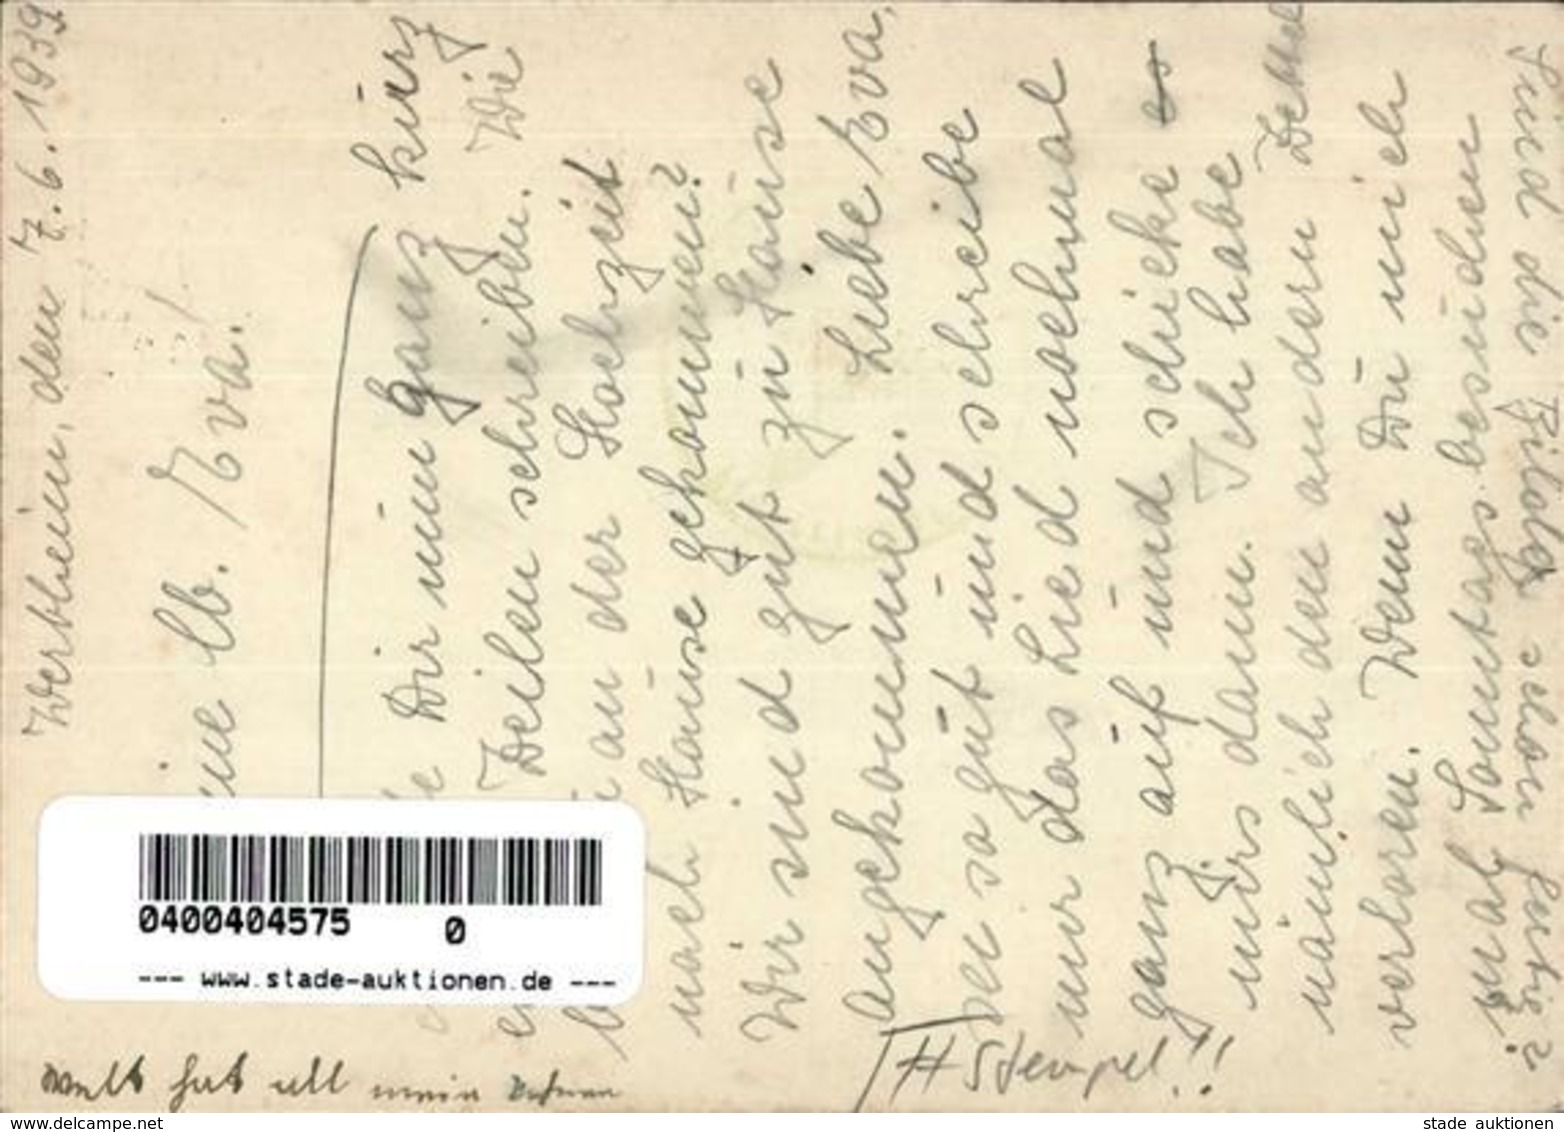 Werblein, den 7.6.1939
lb. Eva!
Dir nun ganz kurz
Zeilen schreiben. Wie
an der Hochzeit
nach Hause gekommen?
Wir sind gut zu Hause
angekommen. Liebe Eva,
sei so gut und schreibe
mir das Lied nochmal
ganz auf und schicke es
mirs dann. Ich habe
nämlich den andern Zettel
verloren. Wenn Du mich
mal Sonntags besuchen
Sind die Bilder schon fertig?
Stempel!!
0400404575 0
--- www.stade-auktionen.de ---
www.delcampe.net
stade auktionen